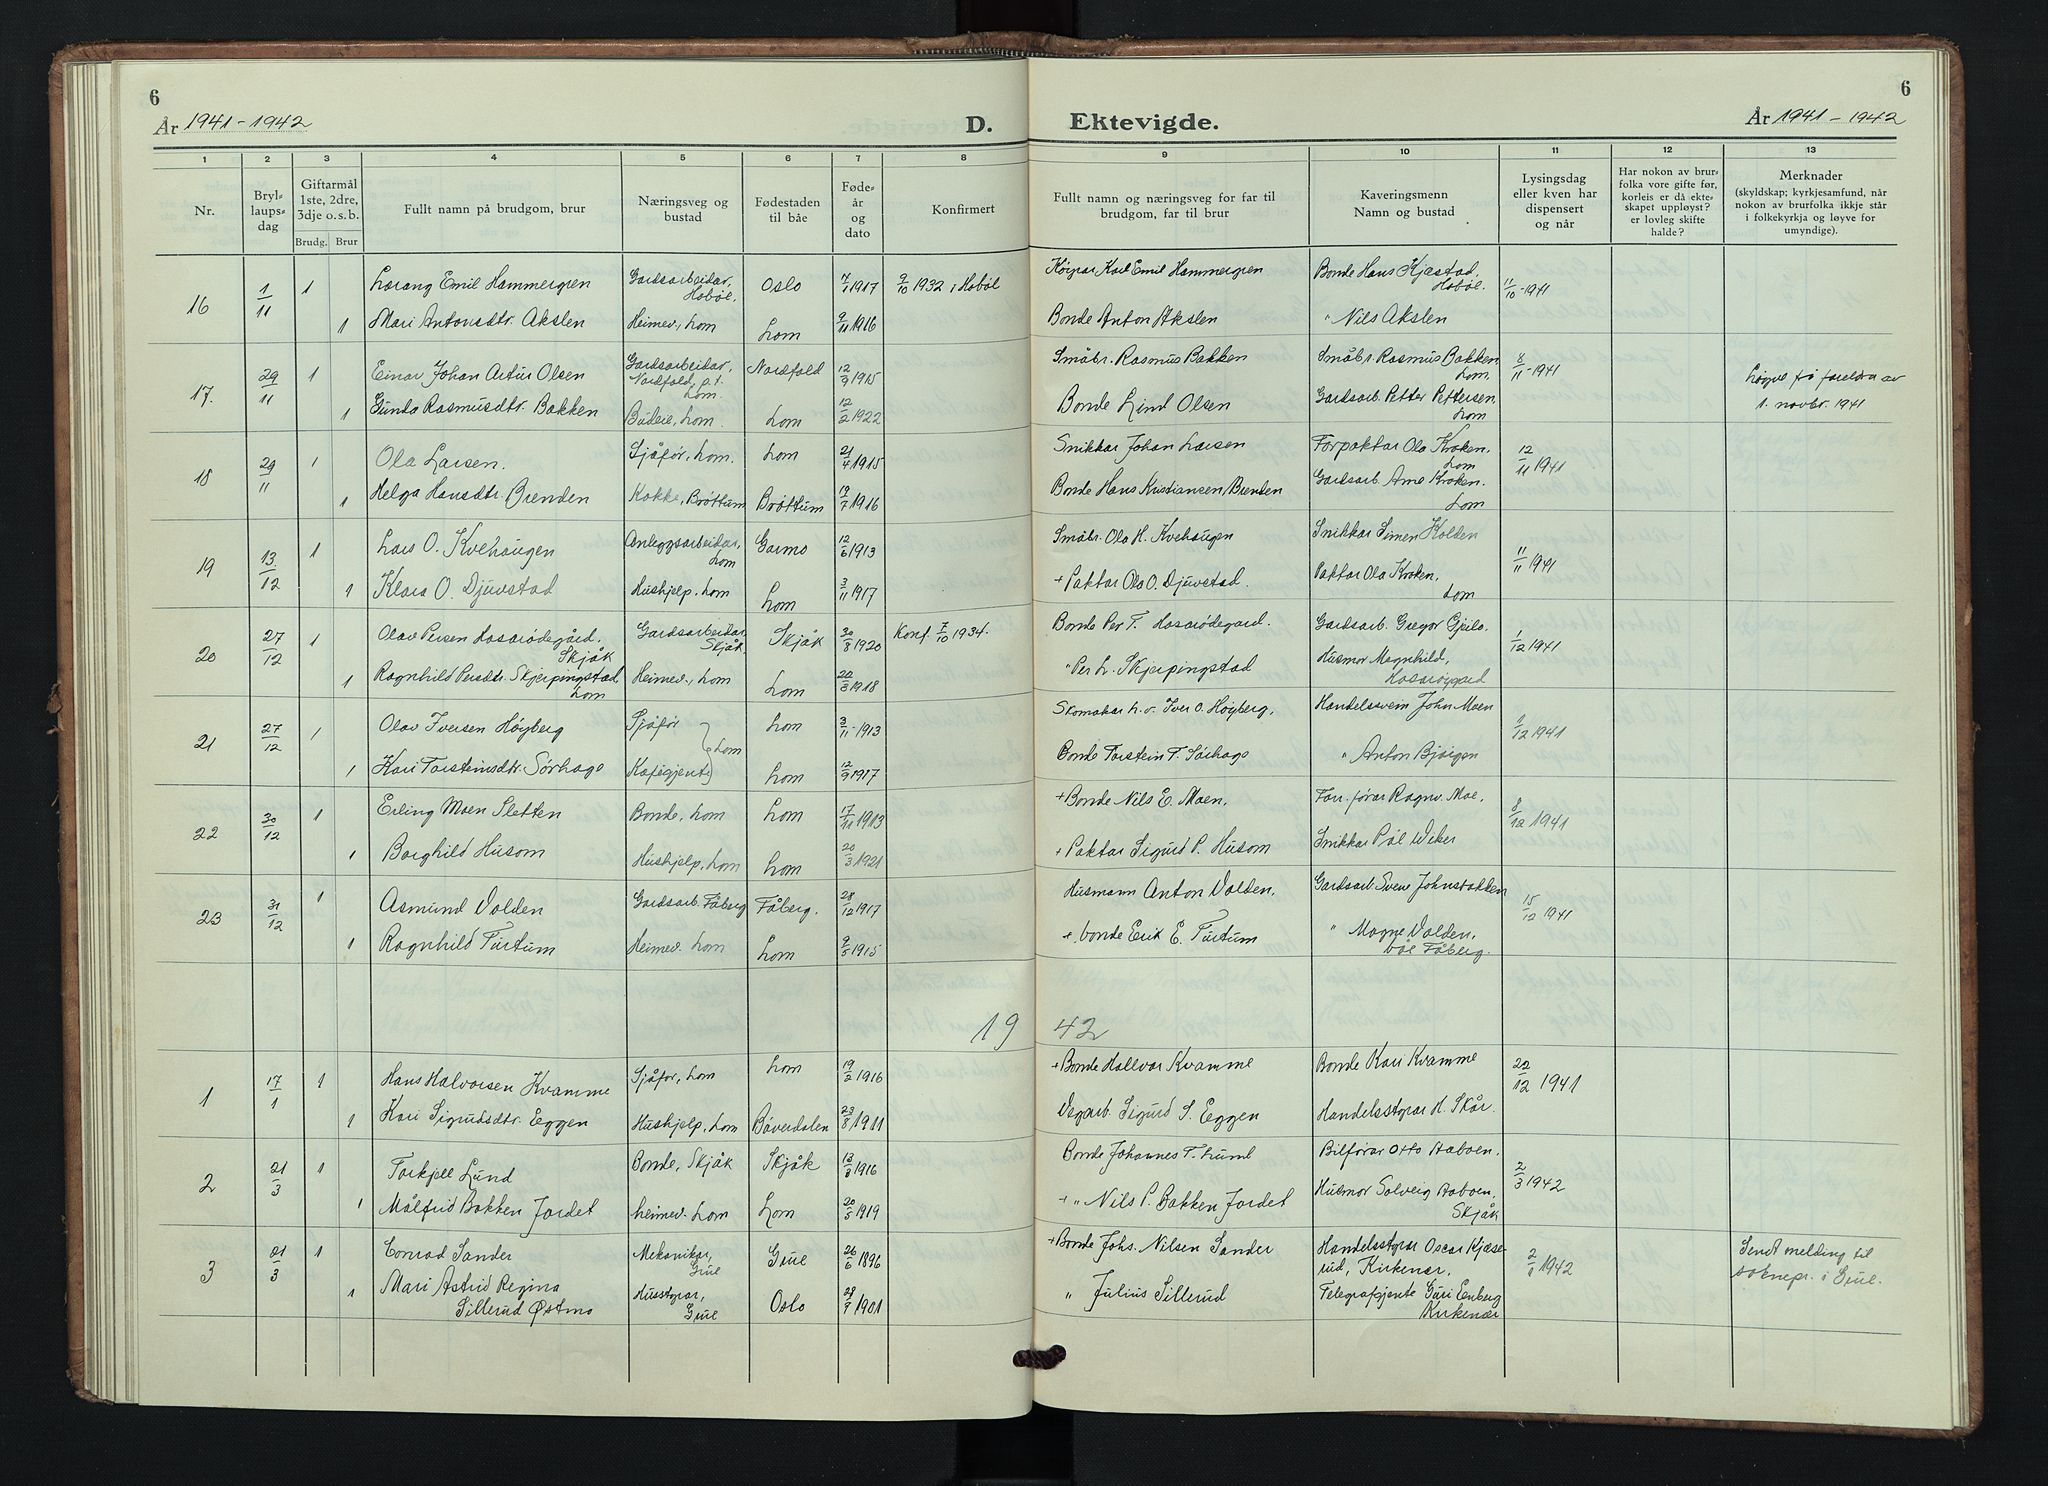 6
År 1941-1942
D.
Ektevigde.
År 1941-1942
6
1 2 3 4 5 6 7 8 9 10 11 12 13
Nr.
Bryl-
laups-
dag
Giftarmål
1ste, 2dre,
3dje o.s.b.
Brudg. Brur
Fullt namn på brudgom, brur
Næringsveg og
bustad
Fødestaden
til båe
Føde-
år
og
dato
Konfirmert
Fullt namn og næringsveg for far til
brudgom, far til brur
Kaveringsmenn
Namn og bustad
Lysingsdag
eller kven har
dispensert
og når
Har nokon av brur-
folka vore gifte før,
korleis er då ekte-
skapet uppløyst?
er lovleg skifte
halde?
Merknader
(skyldskap; kyrkjesamfund, når
nokon av brurfolka ikkje står
i folkekyrkja og løyve for
umyndige).
16 1/11 1 Lorang Emil Hammergren Gardsarbeidar, Hobøl. Oslo 7/1 1917 9/10 1932 i Hobøl Karl Emil Hammergren Bonde Hans Kjæstad, Hobøl. 11/10-1941
1 Mari Antonsdtr. Akslen Heimev., Lom Lom 9/11 1916 Bonde Anton Akslen " Nils Akslen
17. 29/11 1 Einar Johan Artur Olsen Gardsarbeidar, Nordfold, p.t. Lom. Nordfold 12/9 1915 Småbr. Rasmus Bakken Småbr. Rasmus Bakken Lom. 8/11-1941 Løyve frå foreldra av
1 Gunda Rasmusdtr. Bakken Budeie, Lom. Lom 12/2 1922 Bonde Lind Olsen Gardsarb. Petter Pettersen Lom 1. novbr. 1941
18 29/11 1 Ola Larsen. Sjåfør, Lom. Lom 21/4 1915 Snikkar Johan Larsen Forpaktar Ola Kroken, Lom 12/11 1941
1 Helga Hansdtr. Brenden Kokke, Brøttum Brøttum 19/7 1916 Bonde Hans Kristiansen Brenden Gardsarb. Arne Kroken. Lom
19 13/12 1 Lars O. Kvehaugen Anleggsarbeidar, Lom Garmo 12/6 1913 Småbr. Ola H. Kvehaugen Snikkar Simen Kolden 11/11 1941
1 Klara O. Djuvstad Hushjelp, Lom Lom 3/11 1917 + Paktar Ola O. Djuvstad. Paktar Ola Kroken, Lom
20 27/12 1 Olav Persen Hosarødegård, Skjåk Gardsarbeidar Skjåk Skjåk 30/8 1920 Konf. 7/10 1934. Bonde Per T. Hosarødegard. Gardsarb. Gregor Gjeilo. 1/12 1941
1 Ragnhild Persdtr. Skjerpingstad Lom Heimev., Lom Lom 22/3 1918 " Per L. Skjerpingstad Husmor Magnhild,
21 27/12 1 Olav Iversen Høyberg Sjåfør } Lom Lom 3/11-1913 Skomakar h.v. Iver O. Høyberg, Handelssvein John Moen 1/12 1941
1 Kari Torsteinsdtr. Sørhage Kafegjente Lom 12/9 1917 Bonde Torstein T. Sørhage " Anton Bjørgen
22 30/12 1 Erling Moen Sletten Bonde, Lom Lom 17/11 1913 + Bonde Nils E. Moen, Forr.førar Ragnv. Moe, 8/12 1941
1 Borghild Husom Hushjelp, Lom Lom 20/3 1921 + Paktar Sigurd P. Husom Snikkar Pål Viker
23 31/12 1 Asmund Volden Gardsarb. Fåberg Fåberg. 28/12 1917 Husmann Anton Volden, Gardsarb. Svein Johnstakken 15/12 1941
1 Ragnhild Turtum Heimev. Lom Lom 9/5 1915 +. bonde Erik E. Turtum " Magne Volden, Fåberg.
1942
1 17/1 1 Hans Halvorsen Kvamme Sjåfør, Lom Lom 19/2 1916 + Bonde Hallvar Kvamme Bonde Kari Kvamme 22/12 1941
1 Kari Sigurdsdtr. Eggen Hushjelp, Lom Bøverdalen 23/8 1911 Vegarb. Sigurd S. Eggen Handelsstyrar H. Skår.
2 21/3 1 Torkjell Lund Bonde, Skjåk Skjåk 13/3 1916 Bonde Johannes T. Lund Bilførar Otto Aaboen, 2/3 1942
1 Målfrid Bakken Jordet heimev. Lom Lom 20/5 1919 + " Nils P. Bakken Jordet Husmor Solveig Aaboen, Skjåk
3 21/3 1 Conrad Sander Mekanikar, Grue Grue 26/6 1896 + Bonde Johs. Nilsen Sander Handelsstyrar Oscar Kjæse- 1942 Sendt melding til
rud, Kirkenær, soknepr. i Grue.
1 Mari Astrid Regina Husstyrar, " Julius Sillerud Telegrafgjente Guri Enberg
Sillerud Østmo Grue Oslo 1901 Kirkenær